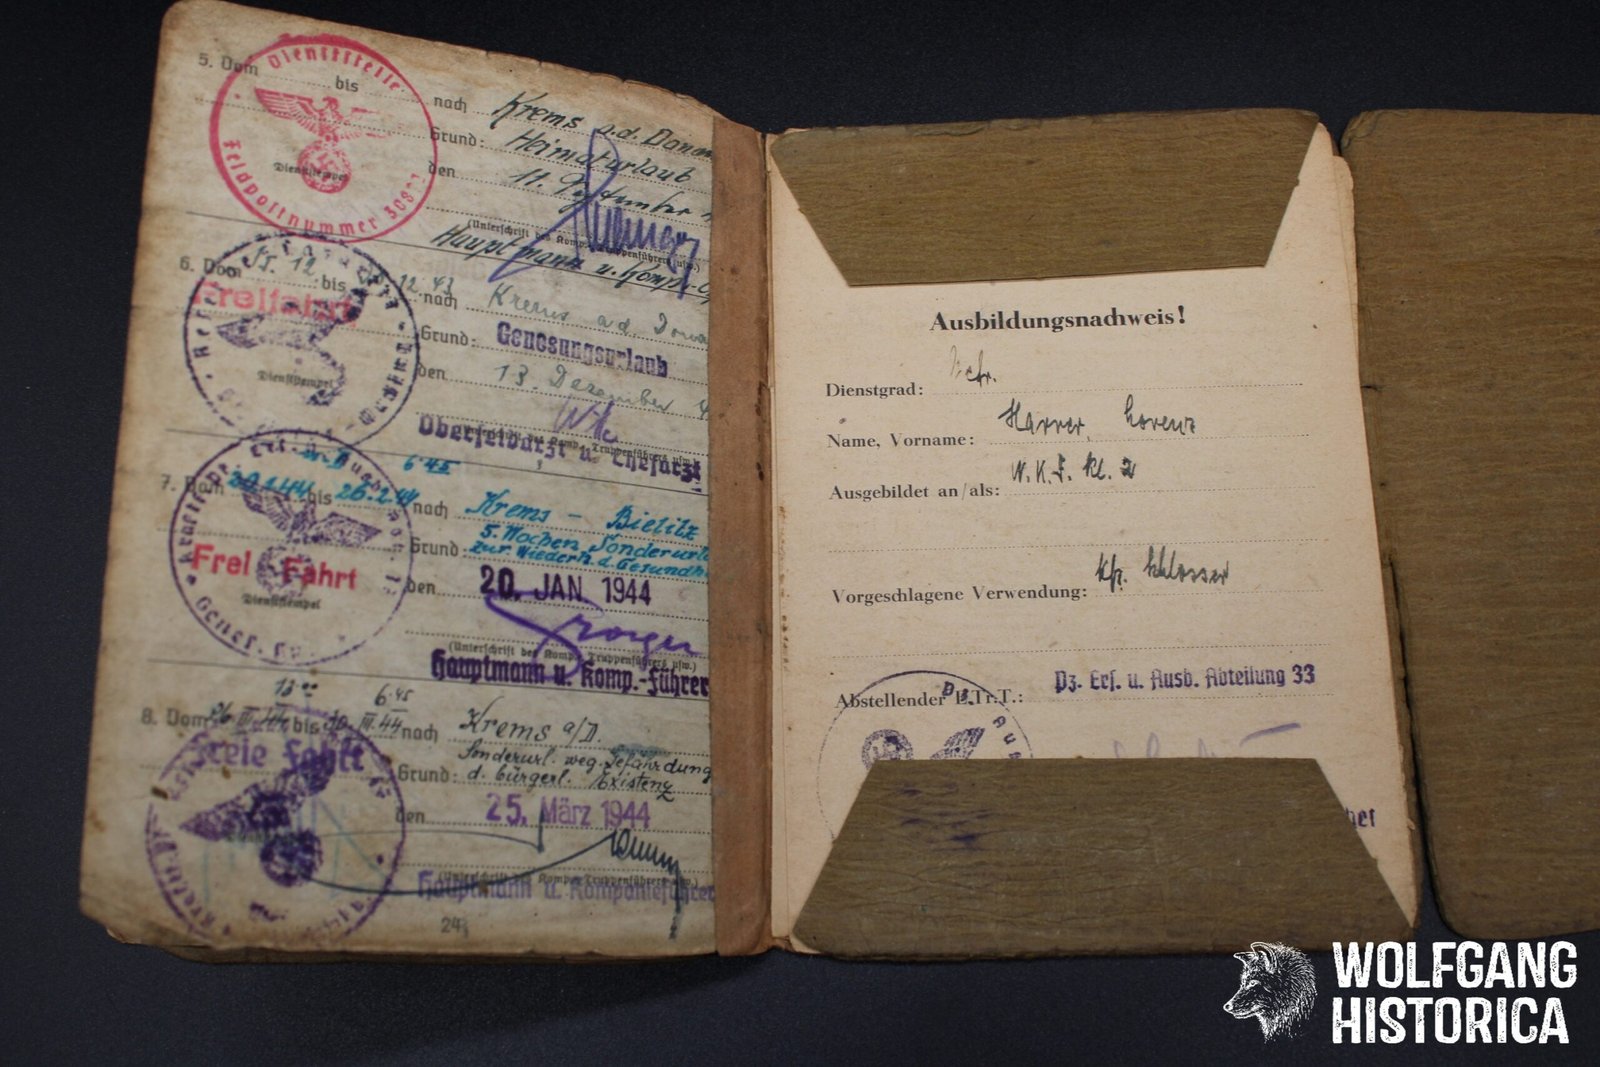 5. Vom
bis
nach Krems a.d. Donau
Grund: Heimaturlaub
den 11. September
Dienststelle
Feldpostnummer
Dienststempel
(Unterschrift des Komp., Truppenführers usw.)
Hauptmann u. Komp.
6. Vom 12. bis 12.43 nach Krems a.d. Donau
Freifahrt
Grund: Genesungsurlaub
den 13. Dezember 4
Dienststempel
Oberfeldarzt u. Chefarzt
6 45
7. Vom 20.1.44 bis 26.2.44 nach Krems - Bielitz
Grund: 5. Wochen Sonderurl
zur Wiederh. d. Gesundh
Frei Fahrt
den 20. JAN. 1944
Dienststempel
(Unterschrift des Komp., Truppenführers usw.)
Hauptmann u. Komp.-Führer
13 00 6 45
8. Vom III. bis III.44 nach Krems a/D.
Freie Fahrt
Grund: Sonderurl. weg. Gefährdung
d. bürgerl. Existenz
den 25. März 1944
Hauptmann u. Kompanieführer
24
Ausbildungsnachweis!
Dienstgrad:
Name, Vorname: Harrer, Lorenz
Ausgebildet an/als: Kl. 2
Vorgeschlagene Verwendung: Kfz. Schlosser
Abstellender Tr.T.: Pz. Ers. u. Ausb. Abteilung 33
WOLFGANG
HISTORICA